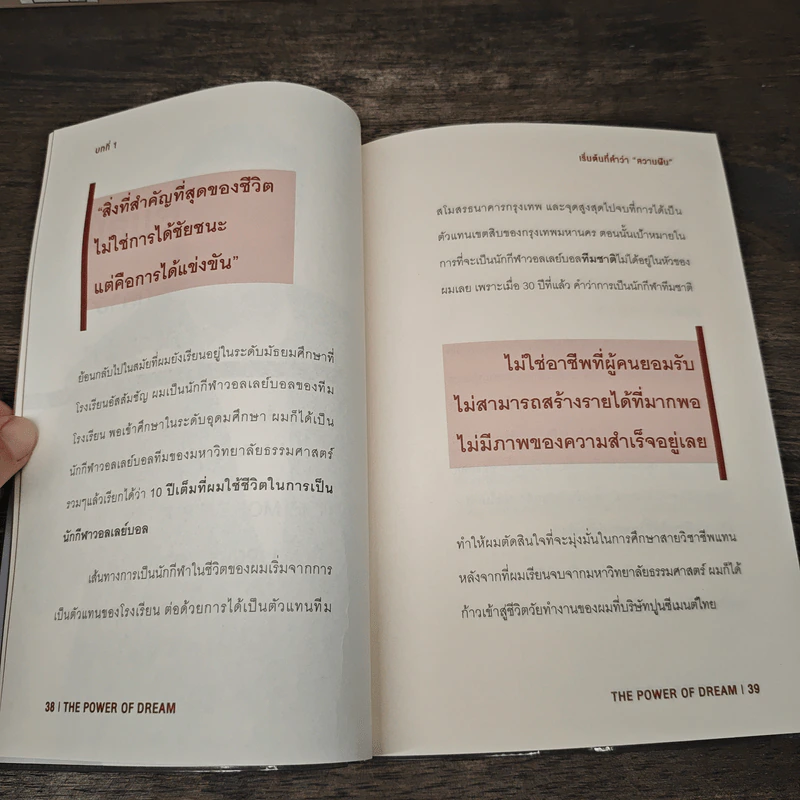 บทที่ 1
“สิ่งที่สำคัญที่สุดของชีวิต
ไม่ใช่การได้ชัยชนะ
แต่คือการได้แข่งขัน”
ย้อนกลับไปในสมัยที่ผมยังเรียนอยู่ในระดับมัธยมศึกษาที่
โรงเรียนอัสสัมชัญ ผมเป็นนักกีฬาวอลเลย์บอลของทีม
โรงเรียน พอเข้าศึกษาในระดับอุดมศึกษา ผมก็ได้เป็น
นักกีฬาวอลเลย์บอลทีมของมหาวิทยาลัยธรรมศาสตร์
รวมๆแล้วเรียกได้ว่า 10 ปีเต็มที่ผมใช้ชีวิตในการเป็น
นักกีฬาวอลเลย์บอล
เส้นทางการเป็นนักกีฬาในชีวิตของผมเริ่มจากการ
เป็นตัวแทนของโรงเรียน ต่อด้วยการได้เป็นตัวแทนทีม
38 | THE POWER OF DREAM
เริ่มต้นที่คำว่า “ความฝัน”
สโมสรธนาคารกรุงเทพ และจุดสูงสุดไปจบที่การได้เป็น
ตัวแทนเขตสิบของกรุงเทพมหานคร ตอนนั้นเป้าหมายใน
การที่จะเป็นนักกีฬาวอลเลย์บอลทีมชาติไม่ได้อยู่ในหัวของ
ผมเลย เพราะเมื่อ 30 ปีที่แล้ว คำว่าการเป็นนักกีฬาทีมชาติ
ไม่ใช่อาชีพที่ผู้คนยอมรับ
ไม่สามารถสร้างรายได้ที่มากพอ
ไม่มีภาพของความสำเร็จอยู่เลย
ทำให้ผมตัดสินใจที่จะมุ่งมั่นในการศึกษาสายวิชาชีพแทน
หลังจากที่ผมเรียนจบจากมหาวิทยาลัยธรรมศาสตร์ ผมก็ได้
ก้าวเข้าสู่ชีวิตวัยทำงานของผมที่บริษัทปูนซีเมนต์ไทย
THE POWER OF DREAM | 39